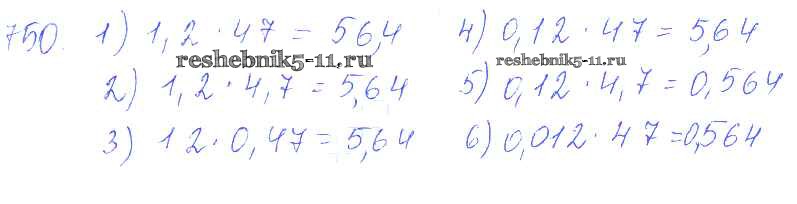 750. 1) 1,2 · 47 = 56,4
2) 1,2 · 4,7 = 5,64
3) 12 · 0,47 = 5,64
4) 0,12 · 47 = 5,64
5) 0,12 · 4,7 = 0,564
6) 0,012 · 47 = 0,564
reshebnik5-11.ru
reshebnik5-11.ru